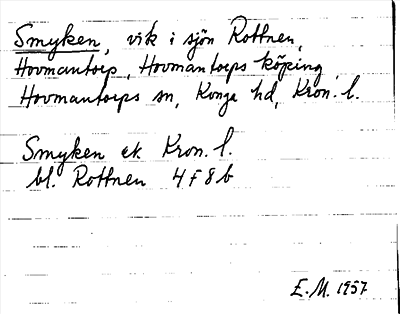 Smyken, vik i sjön Rottnen,
Hovmantorp, Hovmantorps köping,
Hovmantorps sn, Konga hd, Kron. l.
Smyken ek Kron. l.
bl. Rottnen 4F8b
E.M. 1957